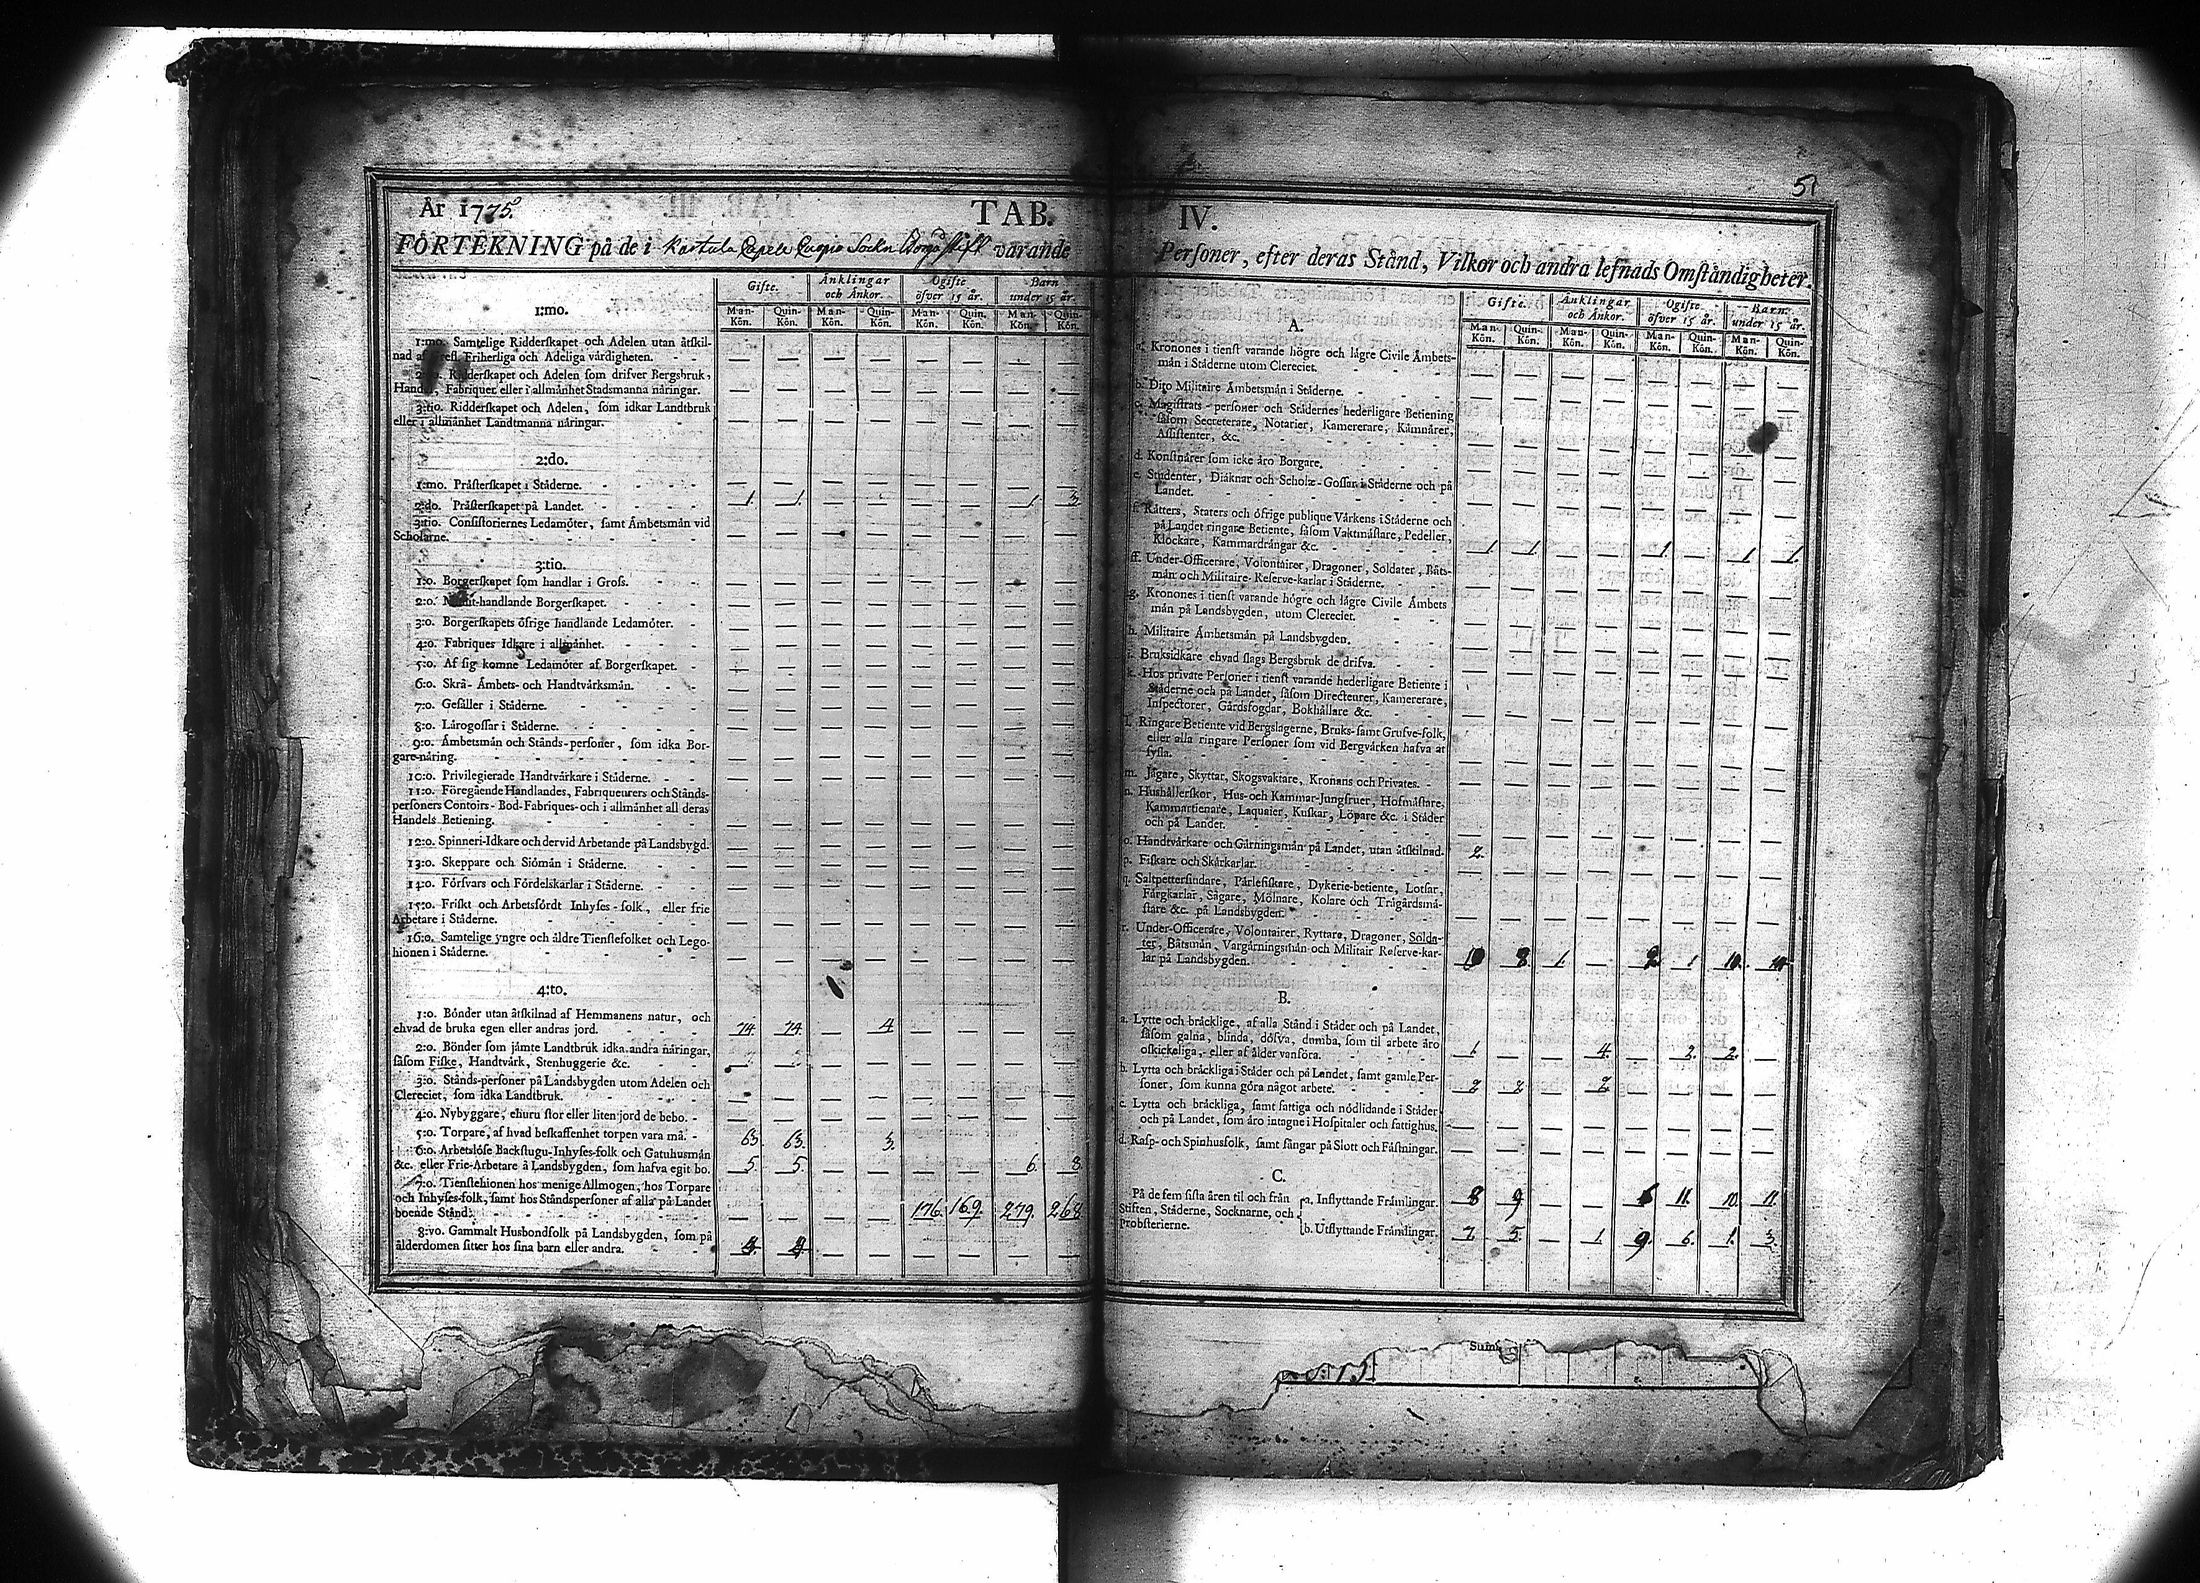 51
År 1775.
TAB. IV.
FÖRTEKNING på de i Karttula Capell Cuopio Sockn Borgå stift varande Personer, efter deras Stånd, Vilkor och andra lefnads Omståndigheter.
Gifte. Änklingar och Änkor. Ogifte öfver 15 år. Barn under 15 år.
Man-Kön. Quin-Kön. Man-Kön. Quin-Kön. Man-Kön. Quin-Kön. Man-Kön. Quin-Kön.
1:mo.
1:mo. Samtelige Ridderskapet och Adelen utan åtskil-
nad af Grefl. Friherliga och Adeliga vårdigheten. — — — — — — — —
2:do. Ridderskapet och Adelen som drifver Bergsbruk,
Handel, Fabriquer eller i allmånhet Stadsmanna nåringar. — — — — — — — —
3:tio. Ridderskapet och Adelen, som idkar Landtbruk
eller i allmånhet Landtmanna nåringar. — — — — — — — —
2:do.
1:mo. Pråsterskapet i Ståderne. — — — — — — — —
2:do. Pråsterskapet på Landet. 1. 1. — — — — 1. 3.
3:tio. Consistoriernes Ledamöter, samt Åmbetsmån vid
Scholarne. — — — — — — — —
3:tio.
1:o. Borgerskapet som handlar i Gross. — — — — — — — —
2:o. Minut-handlande Borgerskapet. — — — — — — — —
3:o. Borgerskapets öfrige handlande Ledamöter. — — — — — — — —
4:o. Fabriques Idkare i allmånhet. — — — — — — — —
5:o. Af sig komne Ledamöter af Borgerskapet. — — — — — — — —
6:o. Skrå- Åmbets- och Handtvårksmån. — — — — — — — —
7:o. Gesåller i Ståderne. — — — — — — — —
8:o. Lårogossar i Ståderne. — — — — — — — —
9:o. Åmbetsmån och Stånds-personer, som idka Bor-
gare-nåring. — — — — — — — —
10:o. Privilegierade Handtvårkare i Ståderne. — — — — — — — —
11:o. Föregående Handlandes, Fabriqueurers och Stånds-
personers Contoirs- Bod-Fabriques- och i allmånhet all deras
Handels Betiening. — — — — — — — —
12:o. Spinneri-Idkare och dervid Arbetande på Landsbygd. — — — — — — — —
13:o. Skeppare och Siömån i Ståderne. — — — — — — — —
14:o. Försvars och Fördelskarlar i Ståderne. — — — — — — — —
15:o. Friskt och Arbetsfördt Inhyses-folk, eller frie
Arbetare i Ståderne. — — — — — — — —
16:o. Samtelige yngre och åldre Tienstefolket och Lego-
hionen i Ståderne. — — — — — — — —
4:to.
1:o. Bönder utan åtskilnad af Hemmanens natur, och
ehvad de bruka egen eller andras jord. 74. 74. — 4. — — — —
2:o. Bönder som jåmte Landtbruk idka andra nåringar,
såsom Fiske, Handtvårk, Stenhuggerie &c. — — — — — — — —
3:o. Stånds-personer på Landsbygden utom Adelen och
Clereciet, som idka Landtbruk. — — — — — — — —
4:o. Nybyggare, ehuru stor eller liten jord de bebo. — — — — — — — —
5:o. Torpare, af hvad beskaffenhet torpen vara må. 63. 63. 3.
6:o. Arbetslöse Backstugu-Inhyses-folk och Gatuhusmån
&c. eller Frie-Arbetare å Landsbygden, som hafva egit bo. 5. 5. — — — — 6. 8.
7:o. Tienstehionen hos menige Allmogen, hos Torpare
och Inhyses-folk, samt hos Ståndspersoner af alla på Landet
boende Stånd. — — — — 176. 169. 279. 268.
8:vo. Gammalt Husbondfolk på Landsbygden, som på
ålderdomen sitter hos sina barn eller andra. — — — — — —
Gifte. Änklingar och Änkor. Ogifte öfver 15 år. Barn under 15 år.
Man-Kön. Quin-Kön. Man-Kön. Quin-Kön. Man-Kön. Quin-Kön. Man-Kön. Quin-Kön.
A.
a. Kronones i tienst varande högre och lågre Civile Åmbets-
mån i Ståderne utom Clereciet. — — — — — — — —
b. Dito Militaire Åmbetsmån i Ståderne. — — — — — — — —
c. Magistrats-personer och Stådernes hederligare Betiening
såsom Secreterare, Notarier, Kamererare, Kåmnårer,
Assistenter, &c. — — — — — — — —
d. Konstnårer som icke åro Borgare. — — — — — — — —
e. Studenter, Diåknar och Scholæ-Gossar i Ståderne och på
Landet. — — — — — — — —
f. Råtters, Staters och öfrige publique Vårkens i Ståderne och
på Landet ringare Betiente, såsom Vaktmåstare, Pedeller,
Klockare, Kammardrångar &c. 1 1 — — 1 — 1 1
ff. Under-Officerare, Volontairer, Dragoner, Soldater, Båts-
mån och Militaire-Reserve-karlar i Ståderne. — — — — — — — —
g. Kronones i tienst varande högre och lågre Civile Åmbets
mån på Landsbygden, utom Clereciet. — — — — — — — —
h. Militaire Åmbetsmån på Landsbygden. — — — — — — — —
i. Bruksidkare ehvad slags Bergsbruk de drifva. — — — — — — — —
k. Hos private Personer i tienst varande hederligare Betiente i
Ståderne och på Landet, såsom Directeurer, Kamererare,
Inspectorer, Gårdsfogdar, Bokhållare &c. — — — — — — — —
l. Ringare Betiente vid Bergslagerne, Bruks- samt Grufve-folk,
eller alla ringare Personer som vid Bergvårken hafva at
syssla. — — — — — — — —
m. Jågare, Skyttar, Skogsvaktare, Kronans och Privates. — — — — — — — —
n. Hushållerskor, Hus- och Kammar-Jungfruer, Hofmåstare,
Kammartienare, Laquaier, Kuskar, Löpare &c. i Ståder
och på Landet. — — — — — — — —
o. Handtvårkare och Gårningsmån på Landet, utan åtskilnad. 2. — — — — — — —
p. Fiskare och Skårkarlar. — — — — — — — —
q. Saltpettersiudare, Pårlefiskare, Dykerie-betiente, Lotsar,
Fårgkarlar, Sågare, Mölnare, Kolare och Trågårdsmå-
stare &c. på Landsbygden. — — — — — — — —
r. Under-Officerare, Volontairer, Ryttare, Dragoner, Solda-
ter, Båtsmån, Vargårningsmån och Militair Reserve-kar-
lar på Landsbygden. 10 8. 1. — 2. 1. 10.
B.
a. Lytte och bråcklige, af alla Stånd i Ståder och på Landet,
såsom galna, blinda, döfva, dumba, som til arbete åro
oskickeliga, eller af ålder vanföra. 1. — — 4. — 2. 2. —
b. Lytta och bråckliga i Ståder och på Landet, samt gamle Per-
soner, som kunna göra något arbete. 2 2 — 2. — — — —
c. Lytta och bråckliga, samt fattiga och nödlidande i Ståder
och på Landet, som åro intagne i Hospitaler och fattighus. — — — — — — — —
d. Rasp- och Spinhusfolk, samt fångar på Slott och Fåstningar. — — — — — — — —
C.
På de fem sista åren til och från
Stiften, Ståderne, Socknarne, och
Probsterierne.
a. Inflyttande Fråmlingar. 8 9 — — 6 11. 10. 11.
b. Utflyttande Fråmlingar. 7. 5. — 1. 9. 6. 1. 3.